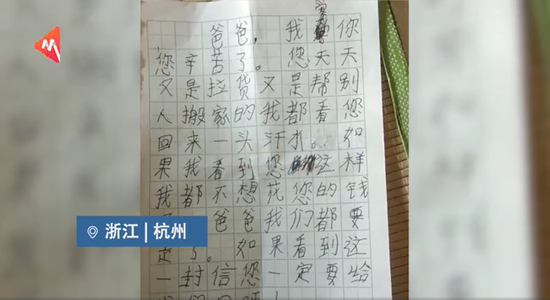 爸爸，我
你
您辛苦了。您天天
又是拉货又是帮别
人搬家的我都看您
回来一头汗水。如
果我看到您这样
我都不想花您的钱
爸爸我们都要
走了。如果看到这
一封信您一定要给
浙江|杭州